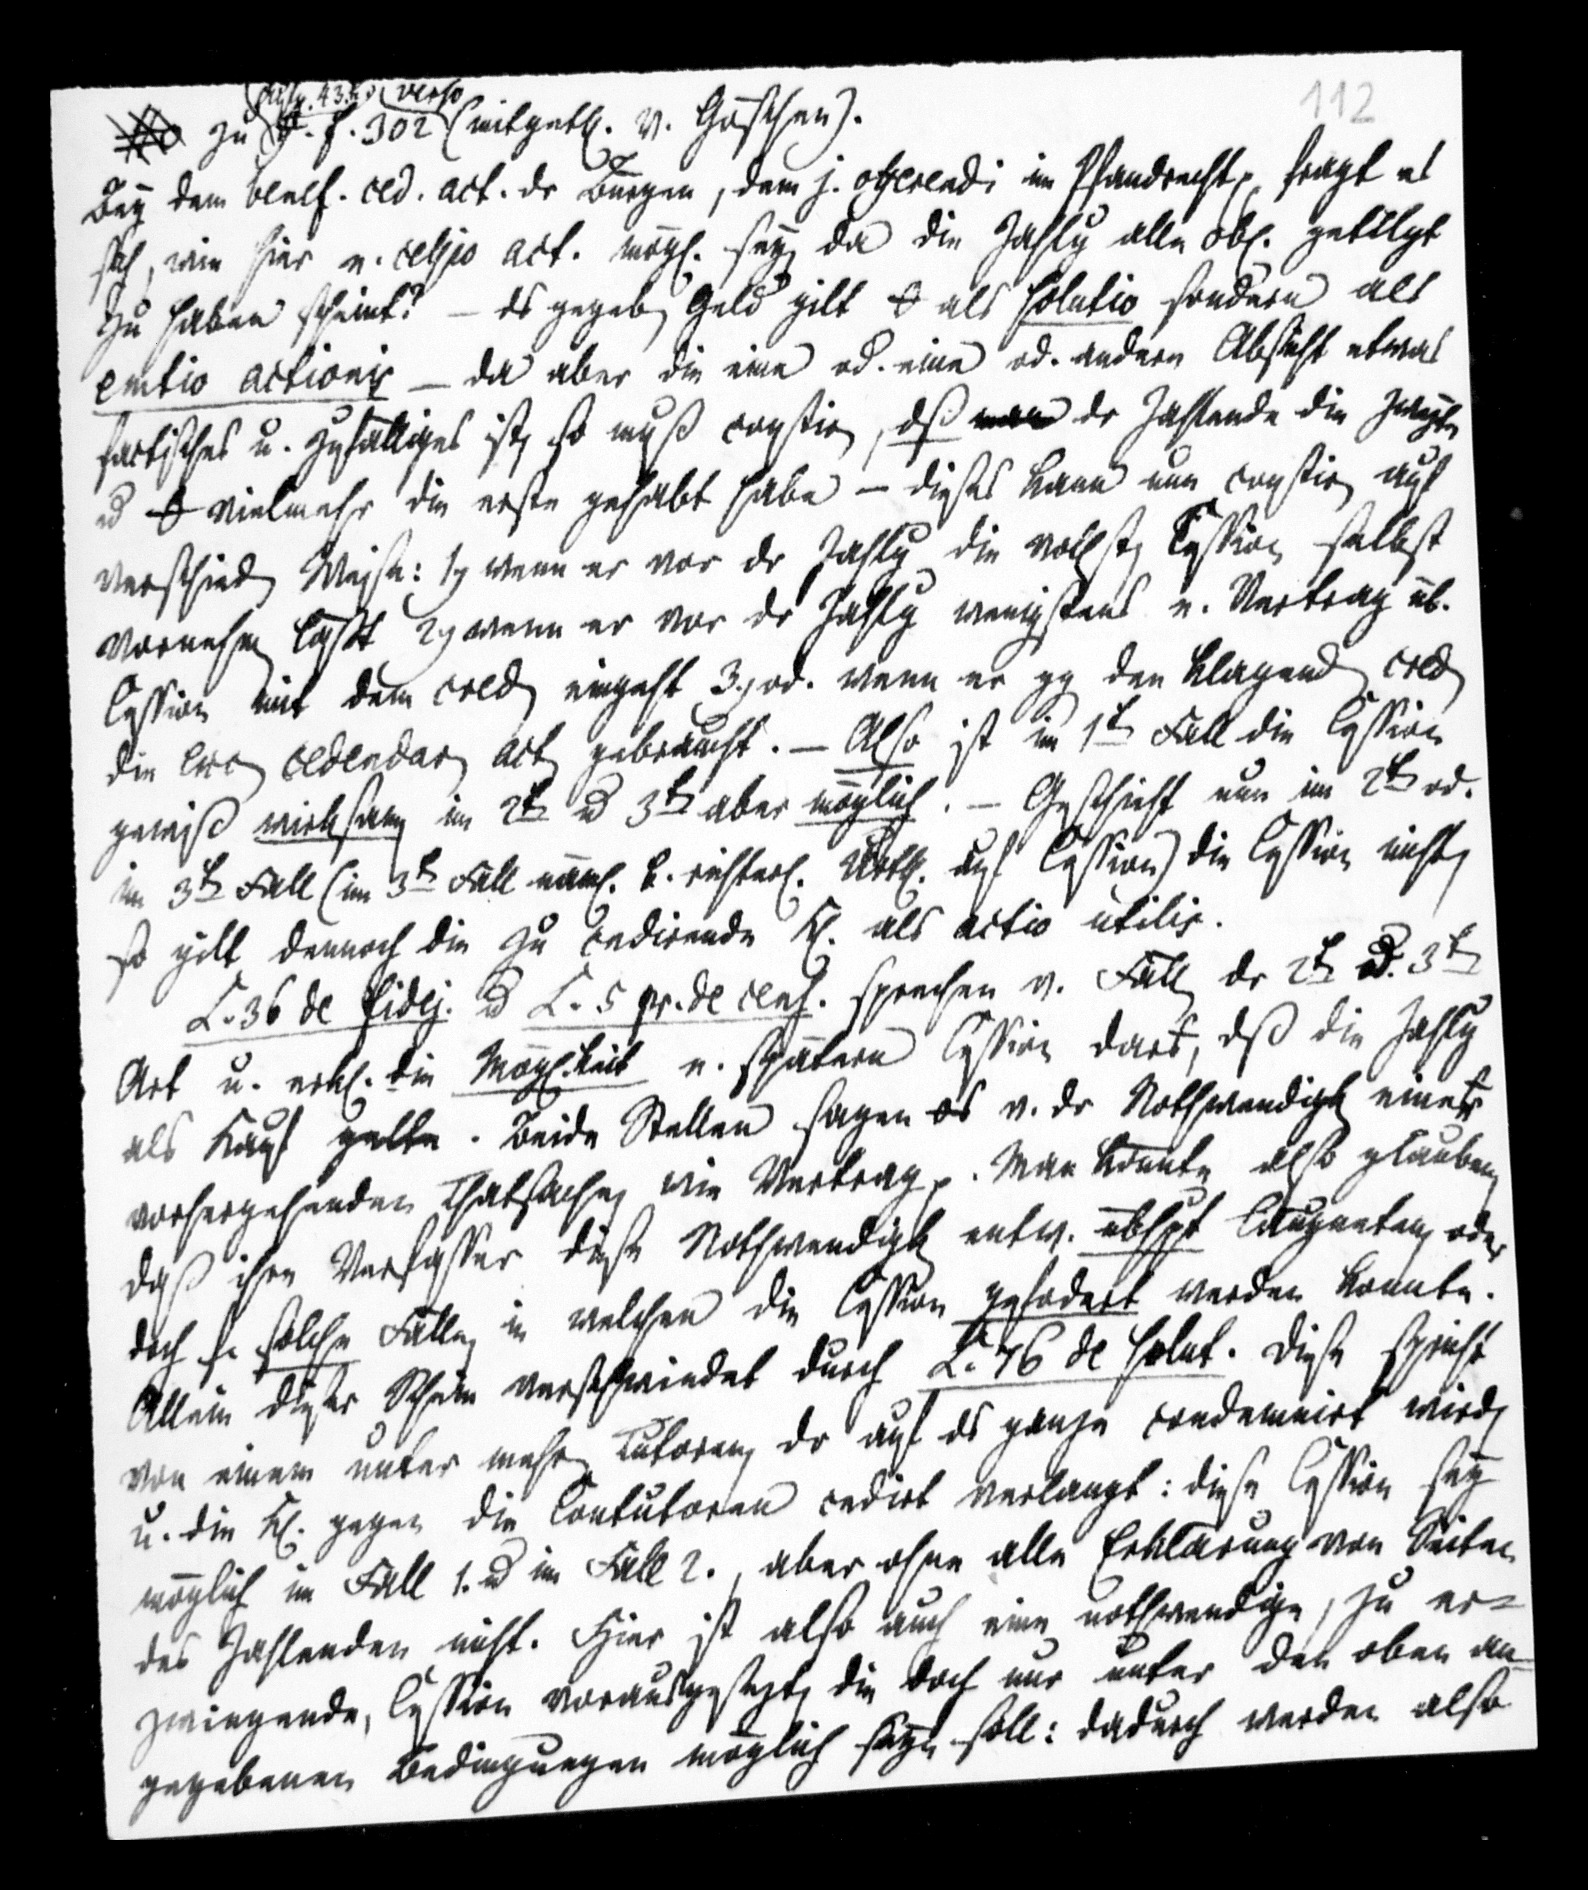 112
verso
zu S. 302 (mitgeth. v. Göschen).
Bey dem benef. ced. act. dr Bürgen, dem j. offerendi im Pfandrecht, fragt es
sich, wie hier e. cessio act. mögl. sey, da die Zahlg alle obl. getilgt
zu haben scheint? – ds gegeb. Geld gilt als solutio sondern als
emtio actionis – da aber die eine od. eine od. andern Absicht etwas
factisches u. zufälliges ist, so muß constir, dß dr Zahlende die zweyte
u vielmehr die erste gehabt habe – dieses kann nun constir auf
verschied. Weise: 1) wenn er vor dr Zahlg die vollst. Cession selbst
vornehm läßt 2) wenn er vor dr Zahlg wenigstens e. Vertrag üb.
Cession mit dem cred. eingeht 3.) od. wenn er gg den klagend cred.
die exc. cedendar. act. gebraucht. – Also ist im 1t Fall die Cession
gewiß wirksam, im 2t u 3t aber möglich. – Geschieht nun im 2t od.
im 3t Fall (im 3t Fall näml. b. richterl. Urth. auf Cession) die Cession nicht,
so gilt dennoch die zu cedirende Kl. als actio utilis.
L. 36 de fidej. u L. 5 pr. de cens. sprechen v. Fäll. dr 2t u. 3t
Art u. erkl. die Möglkeit e. spätern Cession darš, dß die Zahlg
als Kauf gelte. Beide Stellen sagen v. dr Nothwendigk. einer
vorhergehenden Thatsache, wie Vertrag. Man könnte also glauben,
daß ihre Verfasser diese Nothwendigk. entw. übhpt läugneten, oder
doch f. solche Fälle, in welchen die Cession gefodert werden konnte.
Allein dieser Schein verschwindet durch L. 76 de solut. Diese spricht
von einem unter mehr. Tutoren, dr auf ds ganze condemnirt wird,
u. die Kl. gegen die Contutoren cedirt verlangt: diese Cession sey
möglich im Fall 1. u im Fall 2., aber ohne alle Erklärung von Seiten
des Zahlenden nicht. Hier ist also auch eine nothwendige, zu er-
zwingende, Cession vorausgesetzt, die doch nur unter den oben an-
gegebenen Bedingungen möglich seyn soll: dadurch werden also